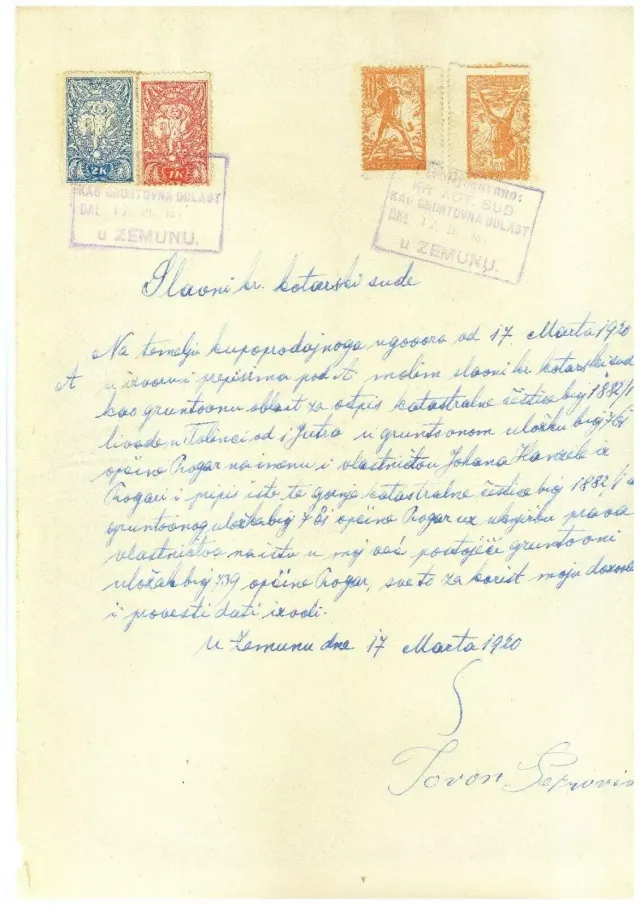 2K 1K
KAO GRUNTOVNA OBLAST
DNE 17
U ZEMUNU.
KOT. SUD
KAO GRUNTOVNA OBLAST
DNE 17
U ZEMUNU.
Slavni kr. kotarski sude
Na temelju kupoprodajnoga ugovora od 17. Marta 1920
A u izvoru i prepisima pod A molim slavni kr. kotarski sud
kao gruntovnu oblast za otpis katastralne čestice broj 1882/1
livade u od 1 Jutra u gruntovnom ulošku broj
općine na imenu i vlasništvu Johana iz
i pripis iste te gornje katastralne čestice broj 1882/1 iz
gruntovnog uloška broj općine uz uknjižbu prava
vlasništva na istu u moj već postojići gruntovni
uložak broj općine , sve to za korist moju
i provesti dati izvoli.
U Zemunu dne 17 Marta 1920
Jovan